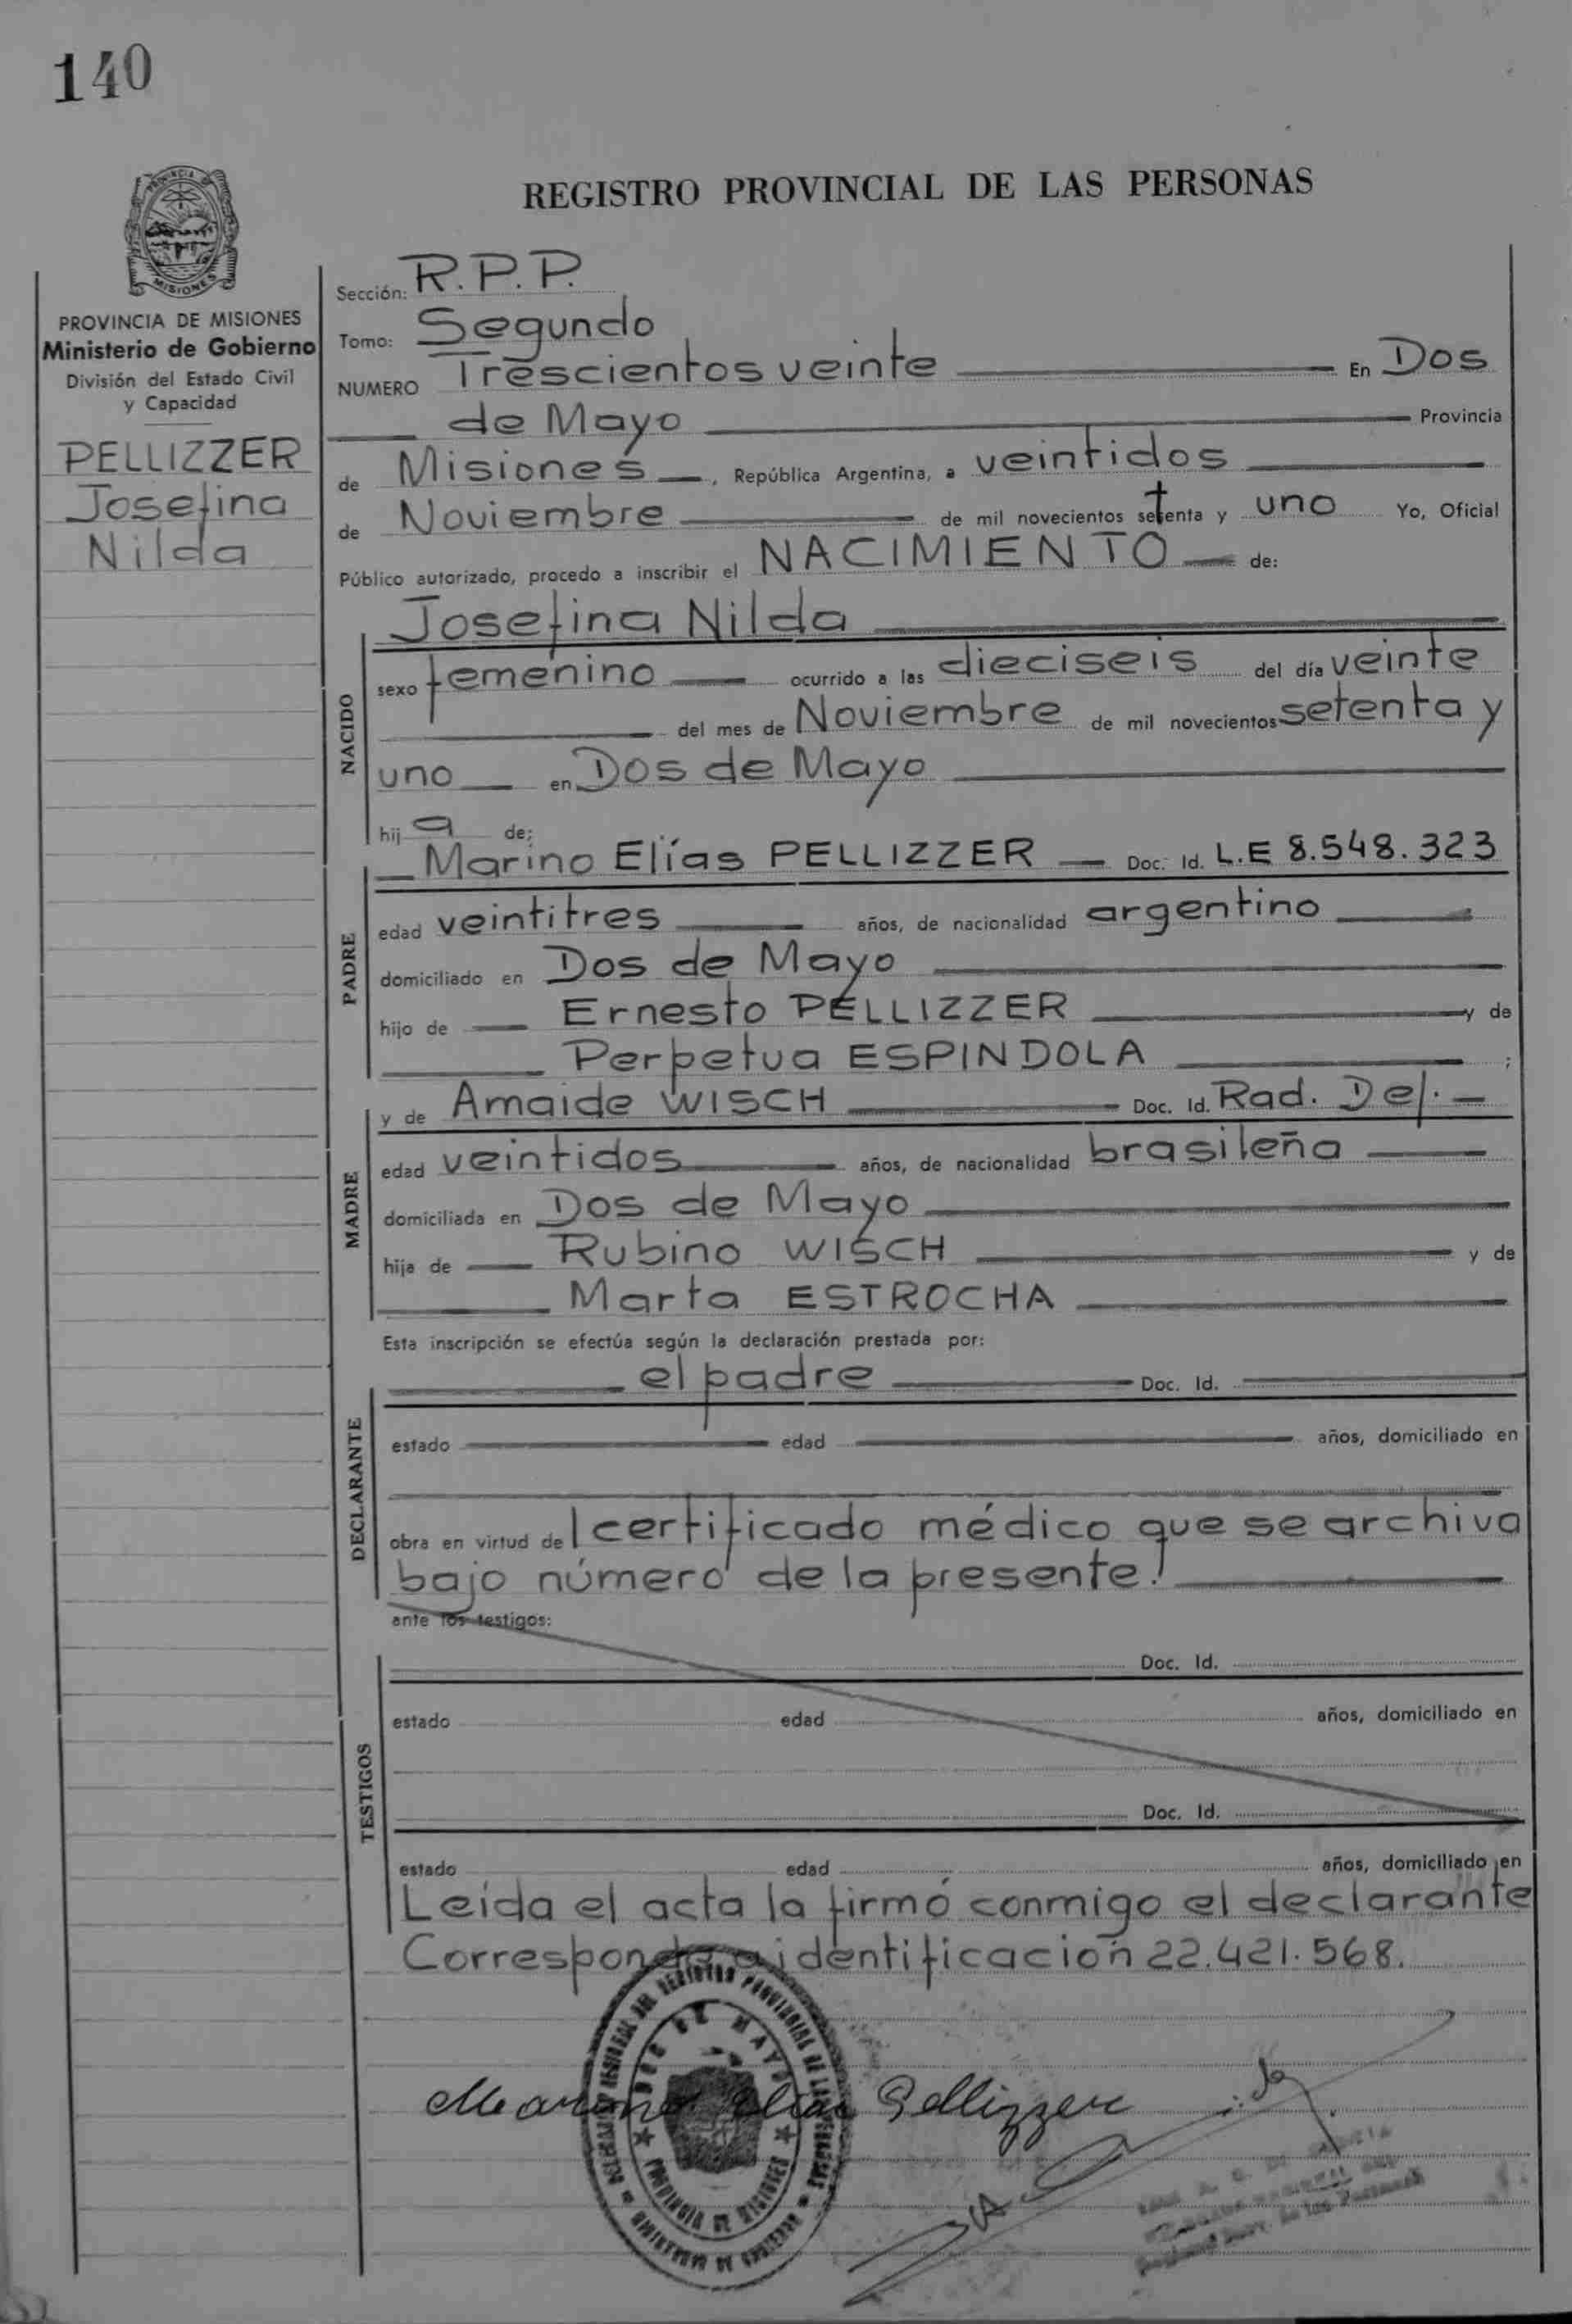 140
PROVINCIA
MISIONES
REGISTRO PROVINCIAL DE LAS PERSONAS
PROVINCIA DE MISIONES
Ministerio de Gobierno
División del Estado Civil
y Capacidad
PELLIZZER
Josefina
Nilda
Sección: R.P.P.
Tomo: Segundo
NUMERO Trescientos veinte En Dos
de Mayo Provincia
de Misiones, República Argentina, a veintidos
de Noviembre de mil novecientos setenta y uno Yo, Oficial
Público autorizado, procedo a inscribir el NACIMIENTO de:
Josefina Nilda
NACIDO
sexo femenino ocurrido a las dieciseis del día veinte
del mes de Noviembre de mil novecientos setenta y
uno en Dos de Mayo
hij a de:
Marino Elías PELLIZZER Doc. Id. L.E 8.548.323
PADRE
edad veintitres años, de nacionalidad argentino
domiciliado en Dos de Mayo
hijo de Ernesto PELLIZZER y de
Perpetua ESPINDOLA ;
y de Amaide WISCH Doc. Id. Rad. Def.
MADRE
edad veintidos años, de nacionalidad brasileña
domiciliada en Dos de Mayo
hija de Rubino WISCH y de
Marta ESTROCHA
Esta inscripción se efectúa según la declaración prestada por:
el padre Doc. Id.
DECLARANTE
estado edad años, domiciliado en
obra en virtud del certificado médico que se archiva
bajo número de la presente.
ante los testigos:
Doc. Id.
TESTIGOS
estado edad años, domiciliado en
Doc. Id.
estado edad años, domiciliado en
Leída el acta la firmó conmigo el declarante
Corresponde a identificación 22.421.568.
DOS DE MAYO
PROVINCIA DE MISIONES
Marino Elías Pellizzer